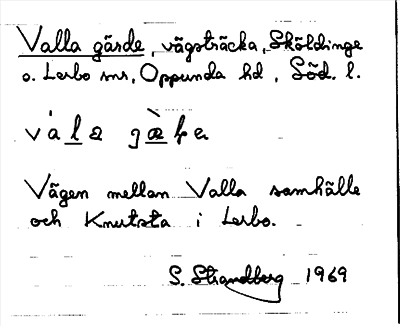 Valla gärde, vägsträcka, Sköldinge
o. Lerbo snr, Oppunda hd, Söd. l.
Vägen mellan Valla samhälle
och Knutsta i Lerbo.
S. Strandberg 1969